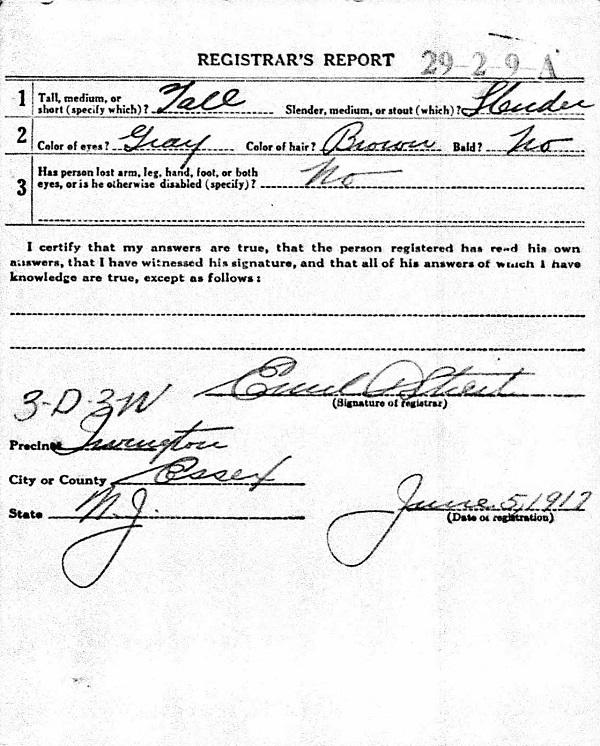 REGISTRAR'S REPORT 29-2-9-A
1 Tall, medium, or short (specify which)? Tall Slender, medium, or stout (which)? Slender
2 Color of eyes? Gray Color of hair? Brown Bald? No
3 Has person lost arm, leg, hand, foot, or both
eyes, or is he otherwise disabled (specify)? No
I certify that my answers are true, that the person registered has read his own
answers, that I have witnessed his signature, and that all of his answers of which I have
knowledge are true, except as follows:
Emil
(Signature of registrar)
3-D-3W
Precinct Irvington
City or County Essex
State N.J.
June 5, 1917
(Date of registration)